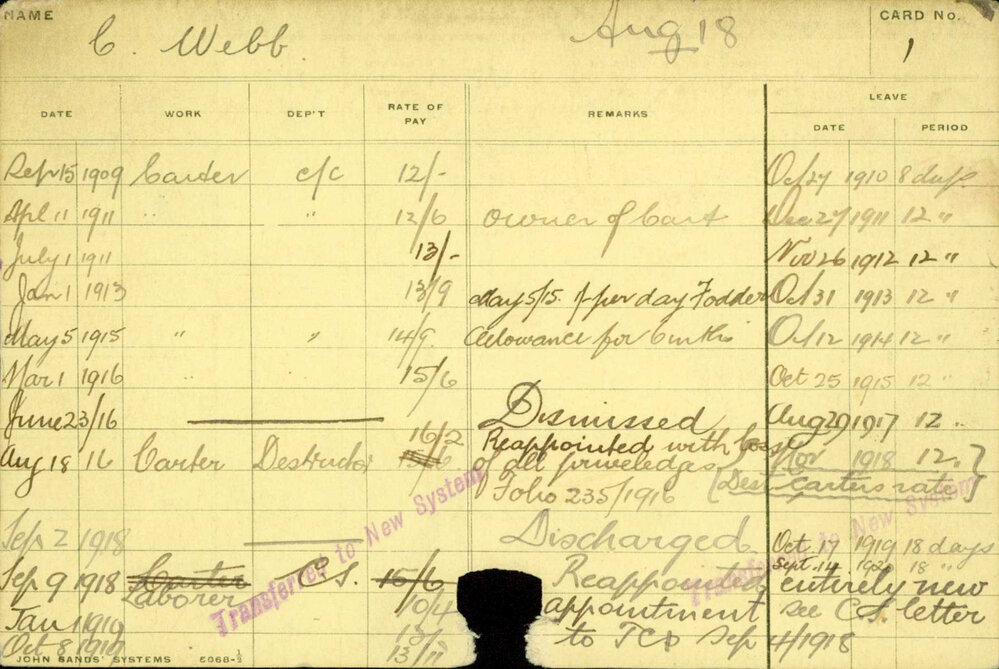 NAME C. Webb Aug 18 CARD No. 1
DATE WORK DEP'T RATE OF PAY REMARKS LEAVE
DATE PERIOD
Sepr 15 1909 Carter c/c 12/- Oct 27 1910 8 days
Apl 11 1911 " " 12/6 Owner of Cart Dec 27 1911 12 "
July 1 1911 13/- Nov 26 1912 12 "
Jan 1 1913 13/9 May 5/15. 1/- per day Fodder Oct 31 1913 12 "
May 5 1915 " " 14/9 Allowance for 6 mths Oct 12 1914 12 "
Mar 1 1916 15/6 Oct 25 1915 12 "
June 23/16 Dismissed Aug 29 1917 12 "
Aug 18 16 Carter Destructor 16/2 15/6 Reappointed with loss Nov 1918 12 "
of all priveledges
Folio 235/1916 [Dest Carters rate]
Transferred to New System
Sep 2 1918 Discharged Oct 17 1919 18 days
Sept. 14 1920 18 "
Sep 9 1918 Carter C. S. 15/6 Reappointed entirely new
Laborer appointment see C.S. letter
Jan 1 1919
Oct 8 1919 13/11 to TCD Sep 4/1918
Transferred to New System
JOHN SANDS' SYSTEMS 6068-½